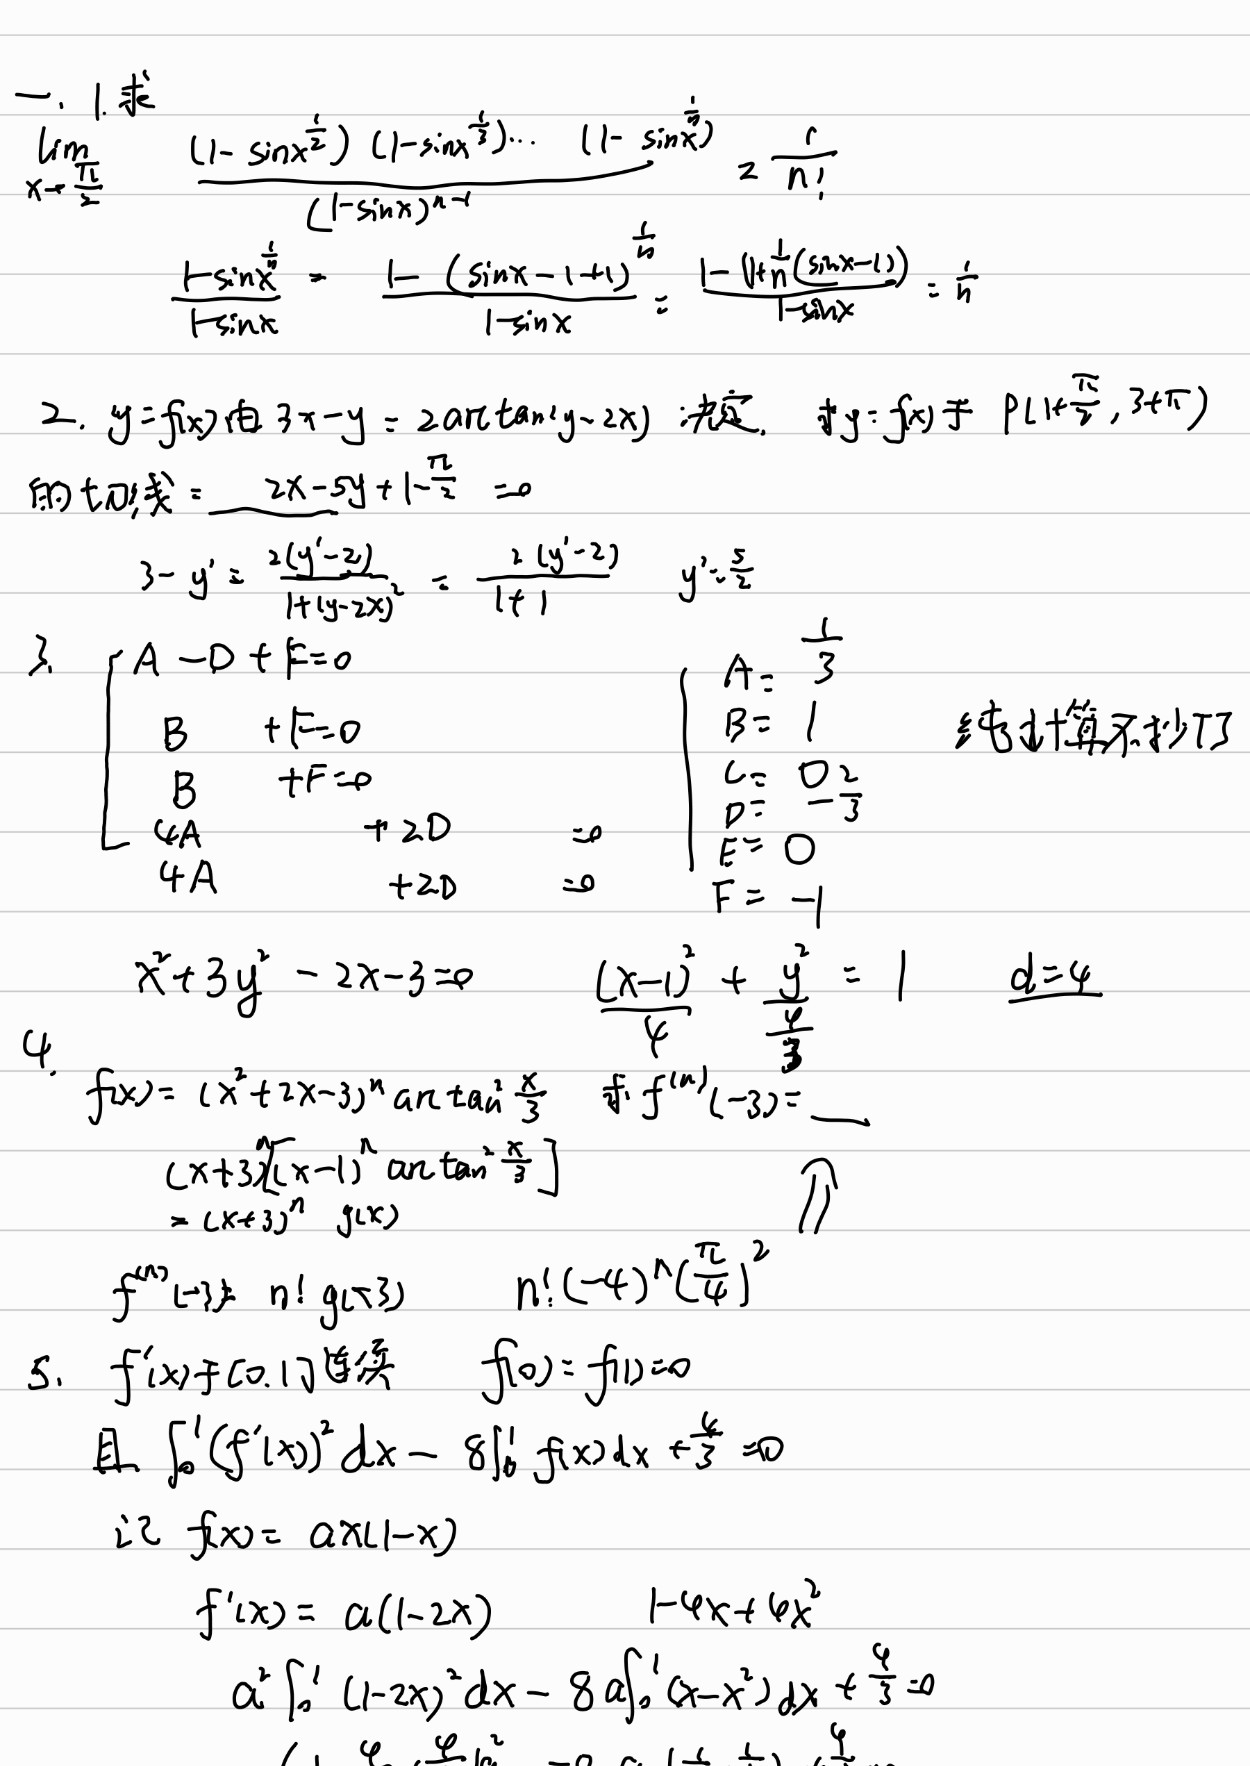 一. 1. 求
lim x→π/2 (1-sinx^{1/2})(1-sinx^{1/3})… (1-sinx^{1/n}) / (1-sinx)^{n-1} = 1/n!
(1-sinx^{1/n})/(1-sinx) = (1-(sinx-1+1)^{1/n})/(1-sinx) = (1-(1+1/n(sinx-1)))/(1-sinx) = 1/n
2. y=f(x)由 3x-y=2arctan(y-2x) 决定. 求y=f(x)于 P(1+π/2, 3+π)
的切线= 2x-5y+1-π/2 =0
3-y' = 2(y'-2)/(1+(y-2x)²) = 2(y'-2)/(1+1) y'=5/2
3. A-D+F=0 A= 1/3
B +F=0 B= 1 纯计算不抄了
B +F=0 C= 0
4A +2D =0 D= -2/3
4A +2D =0 E= 0
F= -1
x²+3y²-2x-3=0 (x-1)²/4 + y²/(4/3) = 1 d=4
4.
f(x)=(x²+2x-3)^n arctan² x/3 求 f^{(n)}(-3)=___
(x+3)^n[(x-1)^n arctan² x/3]
=(x+3)^n g(x)
f^{(n)}(-3)= n! g(-3) n!(-4)^n(π/4)²
5. f'(x)于[0.1]连续 f(0)=f(1)=0
且 ∫₀¹(f'(x))²dx - 8∫₀¹ f(x)dx + 4/3 =0
记 f(x)= ax(1-x)
f'(x)= a(1-2x) 1-4x+4x²
a²∫₀¹ (1-2x)²dx - 8a∫₀¹(x-x²)dx + 4/3 =0